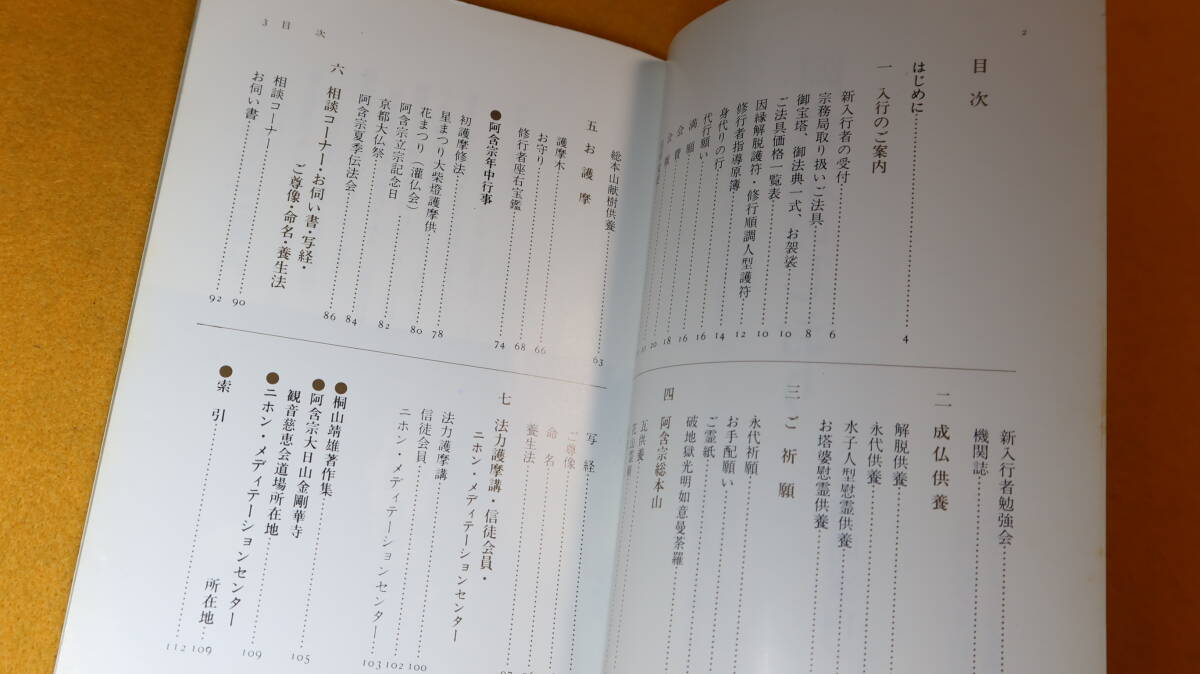 2
目次
はじめに 4
一 入行のご案内
新入行者の受付 6
宗務局取り扱いご法具 8
御宝塔、御法典一式、お袈裟 10
ご法具価格一覧表 10
因縁解脱護符・修行順調人型護符 12
修行者指導原簿 14
身代りの行 16
代行願い 16
満願 18
会費 20
新入行者勉強会
機関誌
二 成仏供養
解脱供養
永代供養
水子人型慰霊供養
お塔婆慰霊供養
三 ご祈願
永代祈願
お手配願い
ご霊紙
破地獄光明如意曼荼羅
四 阿含宗総本山
瓦供養
3 目次
総本山献樹供養 63
五 お護摩
護摩木 66
お守り 68
修行者座右宝鑑 74
●阿含宗年中行事
初護摩修法 78
星まつり大柴燈護摩供 80
花まつり(灌仏会)
阿含宗立宗記念日 82
京都大仏祭 84
阿含宗夏季伝法会 86
六 相談コーナー・お伺い書・写経・
ご尊像・命名・養生法
相談コーナー 90
お伺い書 92
写経
ご尊像
命名
養生法 97
七 法力護摩講・信徒会員・
ニホン・メディテーションセンター
法力護摩講 100
信徒会員 102
ニホン・メディテーションセンター 103
●桐山靖雄著作集 105
●阿含宗大日山金剛華寺
観音慈恵会道場所在地 109
●ニホン・メディテーションセンター
所在地 109
●索引 112